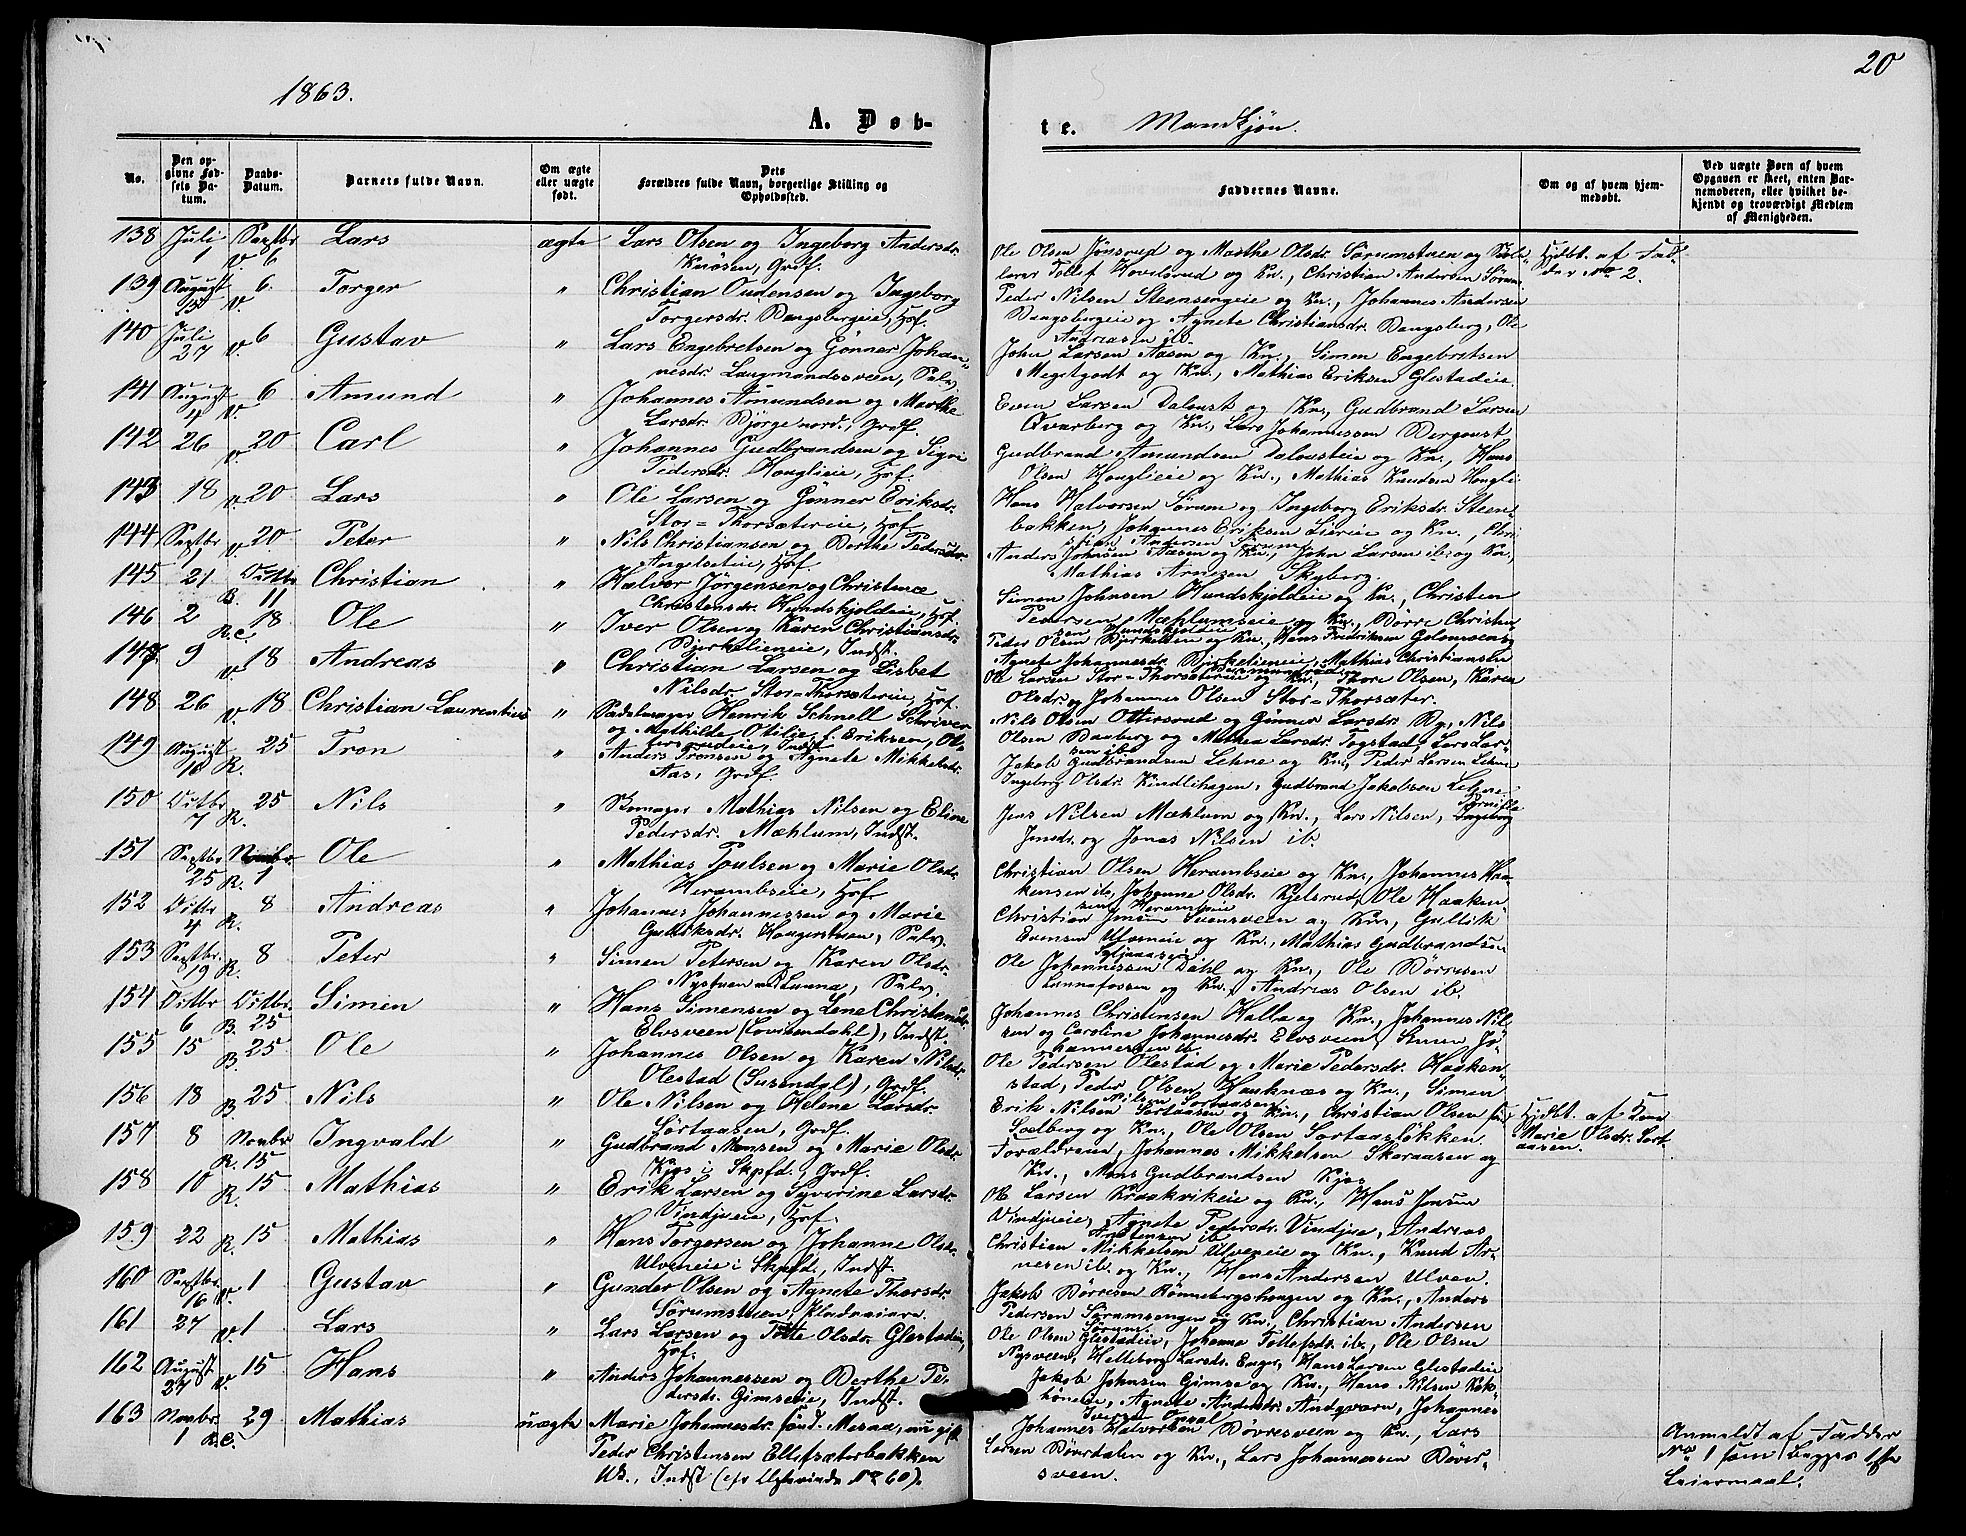 1863.
20
A. Døb-
te. Mandkjøn.
No.
Den opgivne Fødsels Datum.
Daabs-Datum.
Barnets fulde Navn.
Om ægte eller uægte født.
Dets Forældres fulde Navn, borgerlige Stilling og Opholdssted.
Faddernes Navne.
Om og af hvem hjemmedøbt.
Ved uægte Børn af hvem Opgaven er skeet, enten Barnemoderen, eller hvilket bekjendt og troværdigt Medlem af Menigheden.
138 Juli 1 Septbr V. 6 Lars ægte Lars Olsen og Ingeborg Andersdr.
Knøsen, Grdf.
Ole Olsen Jønsrud og Marthe Olsdr. Sørumstuen og
Tollef Hovelsrud og Kn., Christian Andersen Sørum.
Hjdbt. af Fad-
der No 2.
139 August 15 V. 6. Torger " Christian Oudensen og Ingeborg
Torgersdr. Bangsbergeie, Hsf.
Peder Nilsen Steensengeie og Kn., Johannes Andersen
Bangsbergeie og Agnete Christiansdr. Bangsberg, Ole
Andreasen ib.
140 Juli 27 V. 6 Gustav " Lars Engebretsen og Gønner Johan-
nesdr. Langmandssveen, Selv.
John Larsen Aasen og Kn., Simen Engebretsen
Megetgodt og Kn., Mathias Eriksen Glestadeie.
141 August 4 V. 6 Amund " Johannes Amundsen og Marthe
Larsdr. Bjørge nord., Grdf.
Even Larsen Daloust og Kn., Gudbrand Larsen
Qvarberg og Kn., Lars Johannessen Bergoust
142 26 V. 20 Carl " Johannes Gudbrandsen og Signe
Pedersdr. Houglieie, Hsf.
Gudbrand Amundsen Dalousteie og Kn., Hans
Olsen Houglieie og Kn., Mathias Knudsen Hougli.
143 18 V. 20 Lars " Ole Larsen og Gønner Eriksdr.
Stor-Thorsætereie, Hsf.
Hans Halvorsen Sørum og Ingeborg Eriksdr. Steen-
bakken, Johannes Eriksen Liereie og Kn., Chri-
stian Andersen Sørum
144 Septbr 1 V. 20. Peter " Nils Christiansen og Berthe Pedersdr.
Angelseteie, Hsf.
Anders Johnsen Aasen og Kn., John Larsen ib. og Kn.,
Mathias Arnesen Skyberg.
145 21 Octbr B. 11 Christian " Halvor Jørgensen og Christence
Christensdr. Hundskjoldeie, Hsf.
Simen Johnsen Hundskjoldeie og Kn., Christen
Pedersen Mæhlumseie og Kn., Børre Christen-
sen Hundskjoldeie
146 2 R.C. 18 Ole " Iver Olsen og Karen Christiansdr.
Bjerkelieneie, Indst.
Peder Olsen Bjerkelien og Kn., Hans Fredriksen Golomoen og
Agnete Johannesdr. Bjerkelieneie, Mathias Christiansen
147 9 V. 18 Andreas " Christian Larsen og Lisbet
Nilsdr. Stor-Thorsætereie, Hsf.
Ole Larsen Stor-Thorsætereie og Kn., Thore Olsen, Karen
Olsdr. og Johannes Olsen Stor-Thorsæter.
148 26 V. 18 Christian Laurentius " Sadelmager Henrik Schnell Schriver
og Mathilde Otilie f. Eriksen, Ot-
tersrudeie, Indst.
Nils Olsen Ottersrud og Gønner Larsdr. By, Nils
Olsen Baaberg og Mathea Larsdr. Fogstad, Lars Lar-
sen ib.
149 August 16 R. 25 Tron " Anders Tronsen og Agnete Mikkelsdr.
Aas, Grdf.
Jakob Gudbrandsen Lehne og Kn., Peder Larsen Lehne
Ingeborg Olsdr. Kindlihagen, Gudbrand Jakobsen Lehne.
150 Octbr 7 R. 25 Nils " Skomager Mathias Nilsen og Eline
Pedersdr. Mæhlum, Indst.
Jens Nilsen Mæhlum og Kn., Lars Nilsen, Ingeborg
Jensdr. og Jonas Nilsen ib.
151 Septbr 25 Novbr R. 1 Ole " Mathias Poulsen og Marie Olsdr.
Herambseie, Hsf.
Christian Olsen Herambseie og Kn., Johannes Haa-
kensen ib., Johanne Olsdr. Kjelsrud, Ole Haaken-
sen Herambeie
152 Octbr 4 R. 8 Andreas " Johannes Johannessen og Marie
Gulliksdr. Haugerstuen, Selv.
Christian Jensen Svensveen og Kn., Gullik
Evensen Ulvneie og Kn., Mathias Gudbrandsen
153 Septbr. 19 R. 8 Peter " Simen Petersen og Karen Olsdr.
Nystuen ved Lunna, Selv.
Ole Johannessen Dahl og Kn., Ole Børresen
Lunnafossen og Kn., Andreas Olsen ib.
154 Octbr 6 Octbr. B. 25 Simen " Hans Simensen og Lene Christensdr.
Elvsveen (Lovisendahl), Indst.
Johannes Christensen Halla og Kn., Johannes Nil-
sen og Caroline Johannesdr. Elvsveen, Simen Jo-
hannessen ib.
155 15 B. 25 Ole " Johannes Olsen og Karen Nilsdr.
Olestad (Susendal), Grdf.
Ole Pedersen Olestad og Marie Pedersdr. Haaken-
stad, Peder Olsen Hauknæs og Kn., Simen
Nilsen Sortaasen
156 18 B. 25 Nils " Ole Nilsen og Helene Larsdr.
Sortaasen, Grdf.
Erik Nilsen Sortaasen og Kn., Christian Olsen
Solberg og Kn., Ole Olsen Sortaasløkken.
157 8 Novbr R. 15 Ingvald " Gudbrand Monsen og Marie Olsdr.
Kjos i Skpfd., Grdf.
Forældrene, Johannes Mikkelsen Skaraasen og
Kn., Mons Gudbrandsen Kjos
Hjdbt. af
Marie Olsdr. Sort-
aasen.
158 10 R. 15 Mathias " Erik Larsen og Syverine Larsdr.
Vindjueie, Hsf.
Ole Larsen Kraakvikeie og Kn., Hans Jensen
Vindjueie, Agnete Pedersdr. Vindjue, Andreas
159 22 R. 15 Mathias " Hans Torgersen og Johanne Olsdr.
Ulveneie i Skpfd., Indst.
Christian Mikkelsen Ulveneie og Kn., Knud Ar-
nesen ib. og Kn., Hans Andersen Ulven.
160 Septbr. 16 V. 1 Gustav " Gunder Olsen og Agnete Thorsdr.
Sørumstuen,
Jakob Børresen Rønnebergshougen og Kn., Anders
Pedersen Sørumsengen og Kn., Christian Andersen
Sørum.
161 27 V. 1 Lars " Lars Larsen og Tolle Olsdr. Glestadeie,
Hsf.
Ole Olsen Glestadeie, Johanne Tollefsdr. ib., Ole Olsen
Nysveen, Helleborg Larsdr. Enger, Hans Larsen Glestadeie
162 August 27 V. 15 Hans " Anders Johannessen og Berthe Pe-
dersdr. Gimseeie, Indst.
Jakob Johnsen Gimse og Kn., Hans Nilsen
Agnete Andersdr. Andqvern, Johannes
Iversen
163 Novbr. 1 R.C. 29 Mathias uægte Marie Johannesdr. født Mesna, nu gift
Peder Christensen Ellefsæterbakken
Indst (cfr Ugtevindne No 60).
Johannes Halvorsen Døvresveen og Kn., Lars
Larsen Bøverdalen og Kn., Lars Johannessen Døvre-
sveen.
Anmeldt af Fadder
No 1 som begges 1ste
Leiermaal.